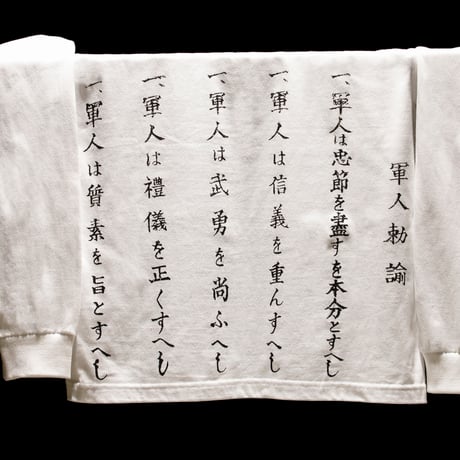 軍人勅諭
一、軍人は忠節を盡すを本分とすへし
一、軍人は信義を重んすへし
一、軍人は武勇を尚ふへし
一、軍人は禮儀を正くすへし
一、軍人は質素を旨とすへし